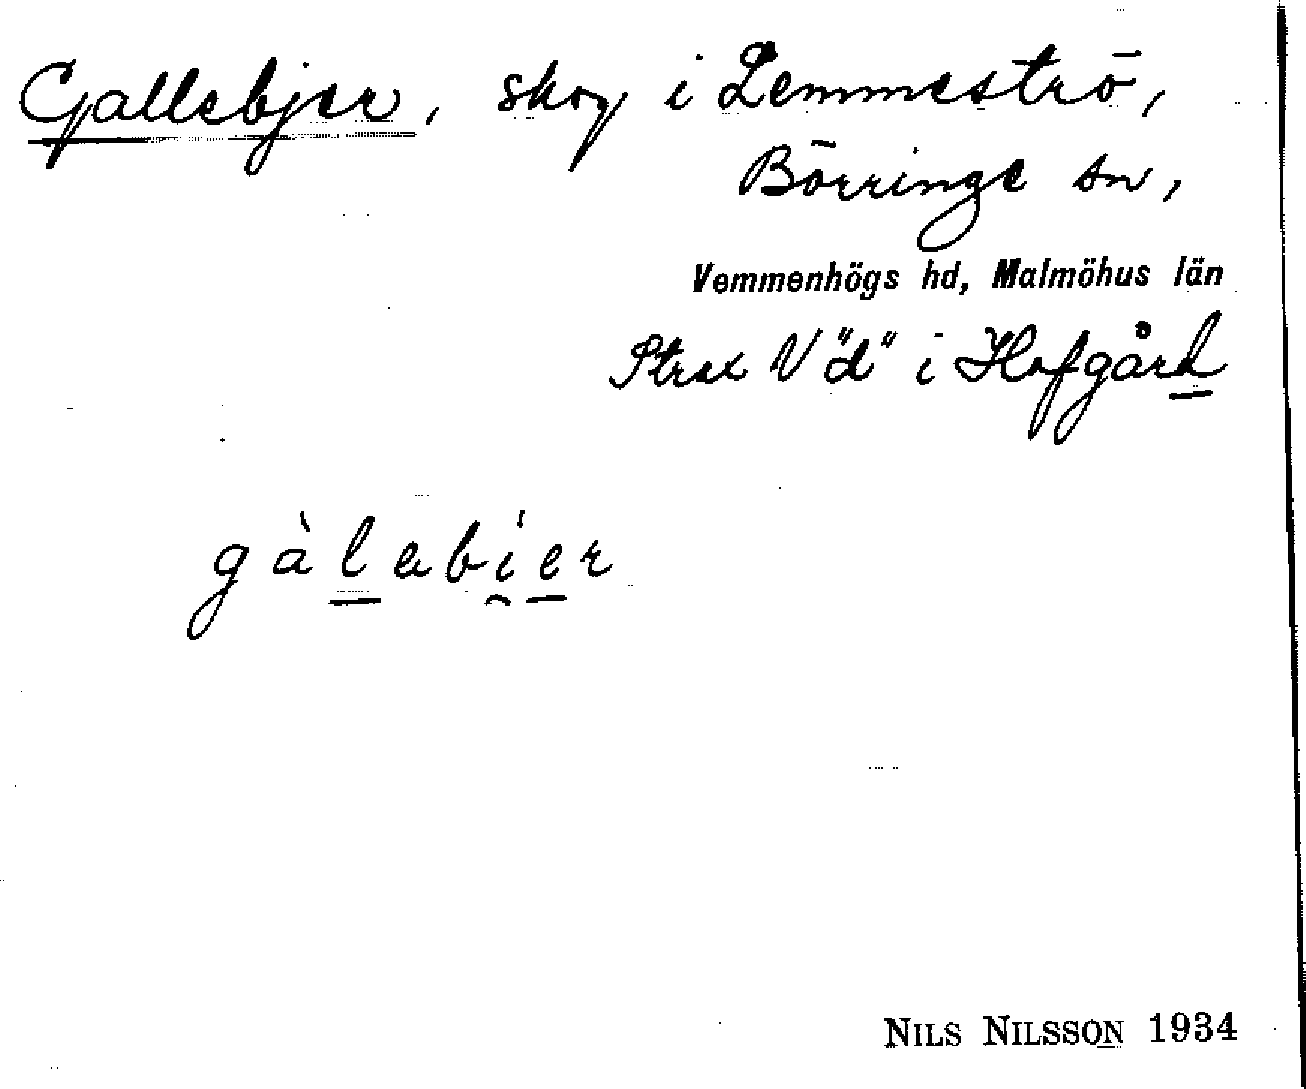 Gallebjer, skog i Lemmeströ,
Börringe sn,
Vemmenhögs hd, Malmöhus län
Strax V "d" i Hofgård
gàlabi̯er
NILS NILSSON 1934